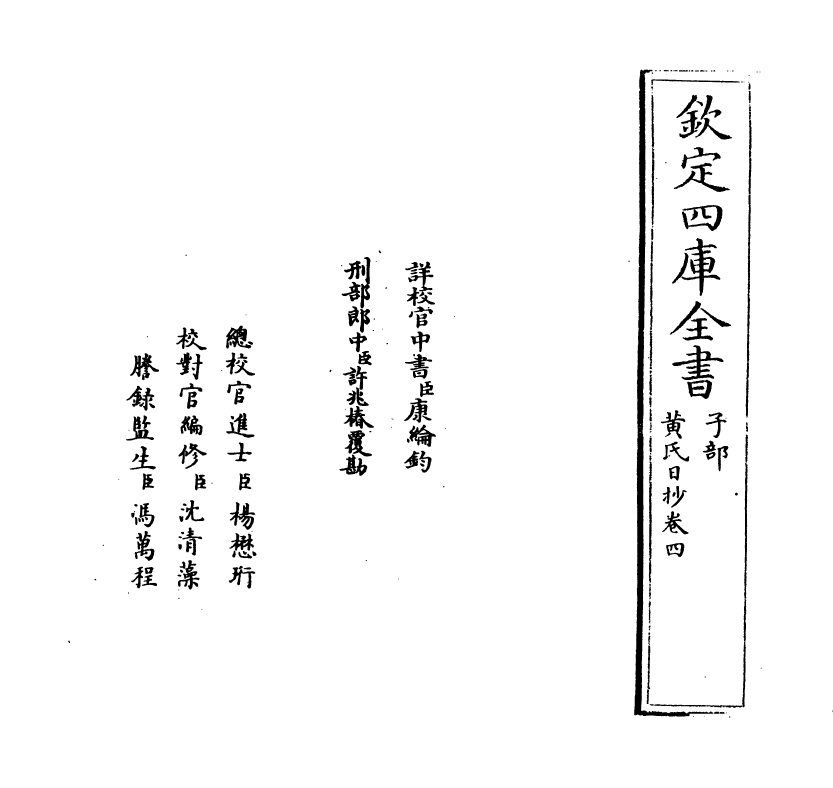 欽定四庫全書
子部
黃氏日抄卷四
詳校官中書臣康綸鈞
刑部郎中臣許兆椿覆勘
總校官進士臣楊懋珩
校對官編修臣沈清藻
謄錄監生臣馮萬程